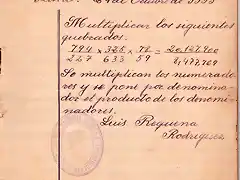 de Octubre de
Multiplicar los siguientes
quebrados.
794 x 325 x 78 = 20.127.900
227 633 59 8,477,769
Se multiplican los numerado
res y se pone por denomina
dor el producto de los denomi
nadores.
Luis Requena
Rodríguez